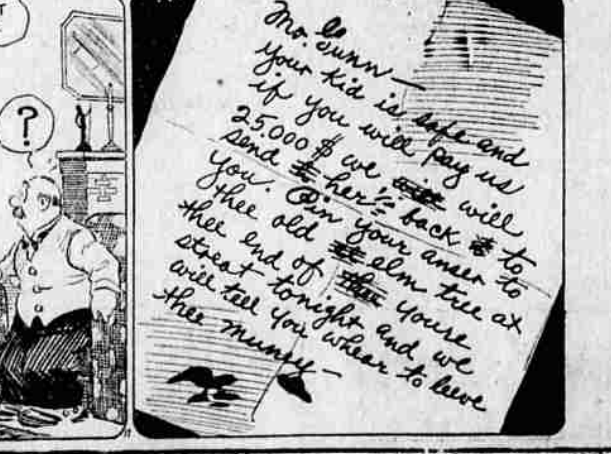 ?
Mr. Gunn —
your kid is safe and
if you will pay us
25.000 $ we will
send her back to
you. Pin your anser to
thee old elm tree at
thee end of youre
streat tonight and we
will tell you whear to leeve
thee muney —